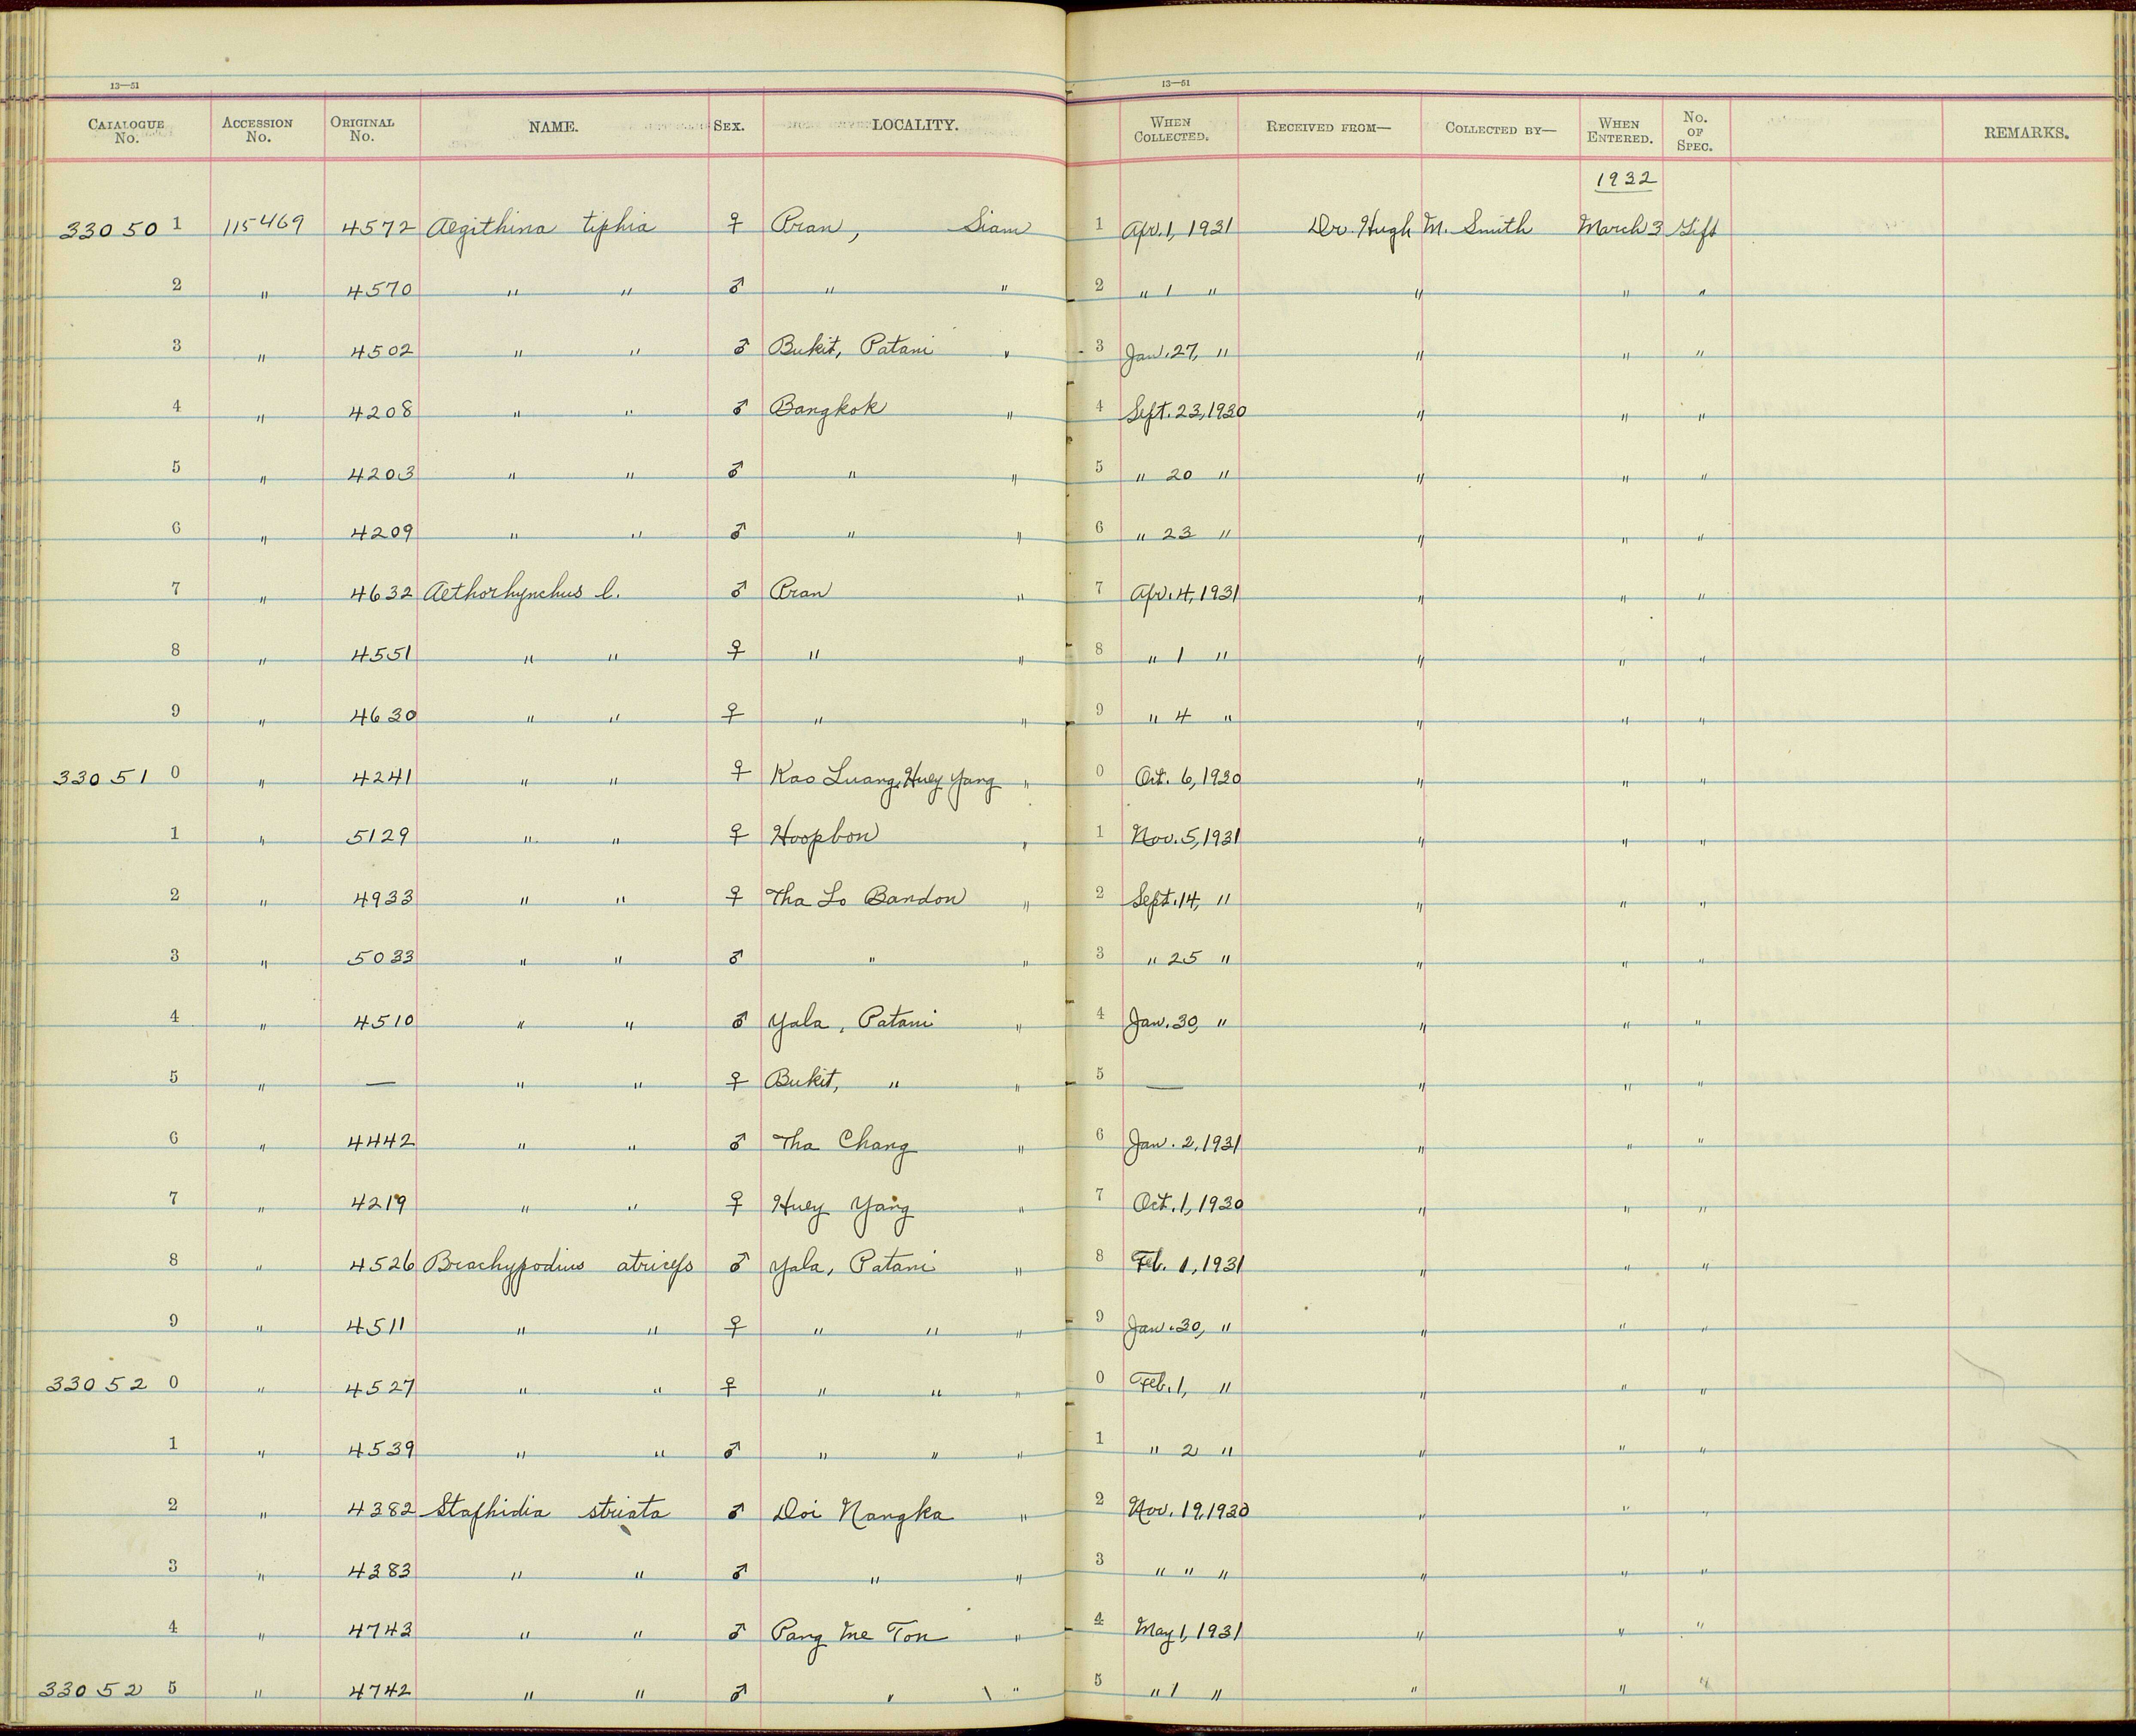 13—51 13—51
CATALOGUE No. ACCESSION No. ORIGINAL No. NAME. SEX. LOCALITY. WHEN COLLECTED. RECEIVED FROM— COLLECTED BY— WHEN ENTERED. No. OF SPEC. REMARKS.
1932
330501 115469 4572 Aegithina tiphia ♀ Pran, Siam 1 Apr. 1, 1931 Dr. Hugh M. Smith March 3 Gift
2 " 4570 " " ♂ " " 2 " 1 " " " "
3 " 4502 " " ♂ Bukit, Patani " 3 Jan. 27, " " " "
4 " 4208 " " ♂ Bangkok " 4 Sept. 23, 1930 " " "
5 " 4203 " " ♂ " " 5 " 20 " " " "
6 " 4209 " " ♂ " " 6 " 23 " " " "
7 " 4632 Aethorhynchus l. ♂ Pran " 7 Apr. 4, 1931 " " "
8 " 4551 " " ♀ " " 8 " 1 " " " "
9 " 4630 " " ♀ " " 9 " 4 " " " "
330510 " 4241 " " ♀ Kao Luang, Huey Yang " 0 Oct. 6, 1930 " " "
1 " 5129 " " ♀ Hoopbon " 1 Nov. 5, 1931 " " "
2 " 4933 " " ♀ Tha Lo Bandon " 2 Sept. 14, " " " "
3 " 5033 " " ♂ " " 3 " 25 " " " "
4 " 4510 " " ♂ Yala, Patani " 4 Jan. 30, " " " "
5 " — " " ♀ Bukit, " " 5 — " " "
6 " 4442 " " ♂ Tha Chang " 6 Jan. 2, 1931 " " "
7 " 4219 " " ♀ Huey Yang " 7 Oct. 1, 1930 " " "
8 " 4526 Brachypodius atriceps ♂ Yala, Patani " 8 Feb. 1, 1931 " " "
9 " 4511 " " ♀ " " " 9 Jan. 30, " " " "
330520 " 4527 " " ♀ " " " 0 Feb. 1, " " " "
1 " 4539 " " ♂ " " " 1 " 2 " " " "
2 " 4382 Staphidia striata ♂ Doi Nangka " 2 Nov. 19, 1930 " " "
3 " 4383 " " ♂ " " 3 " " " " " "
4 " 4743 " " ♂ Pang Me Ton " 4 May 1, 1931 " " "
330525 " 4742 " " ♂ " " 5 " 1 " " " "